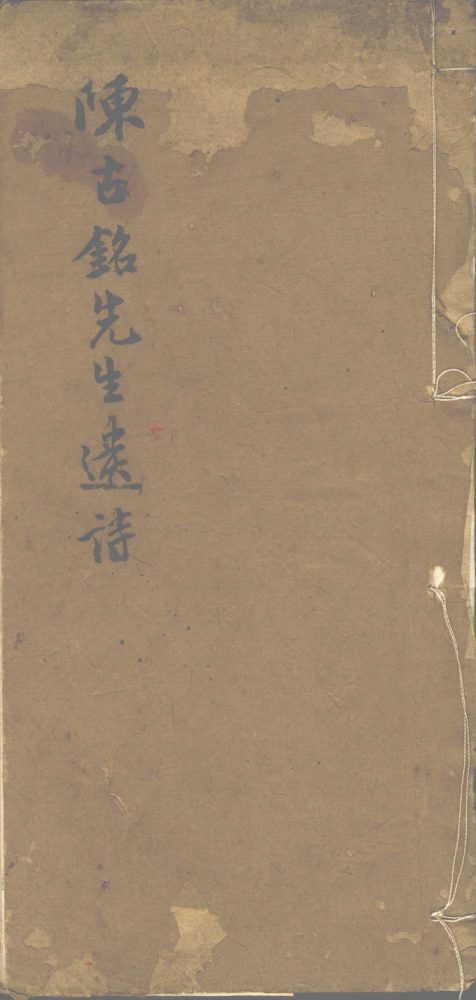 陳古銘先生遺詩